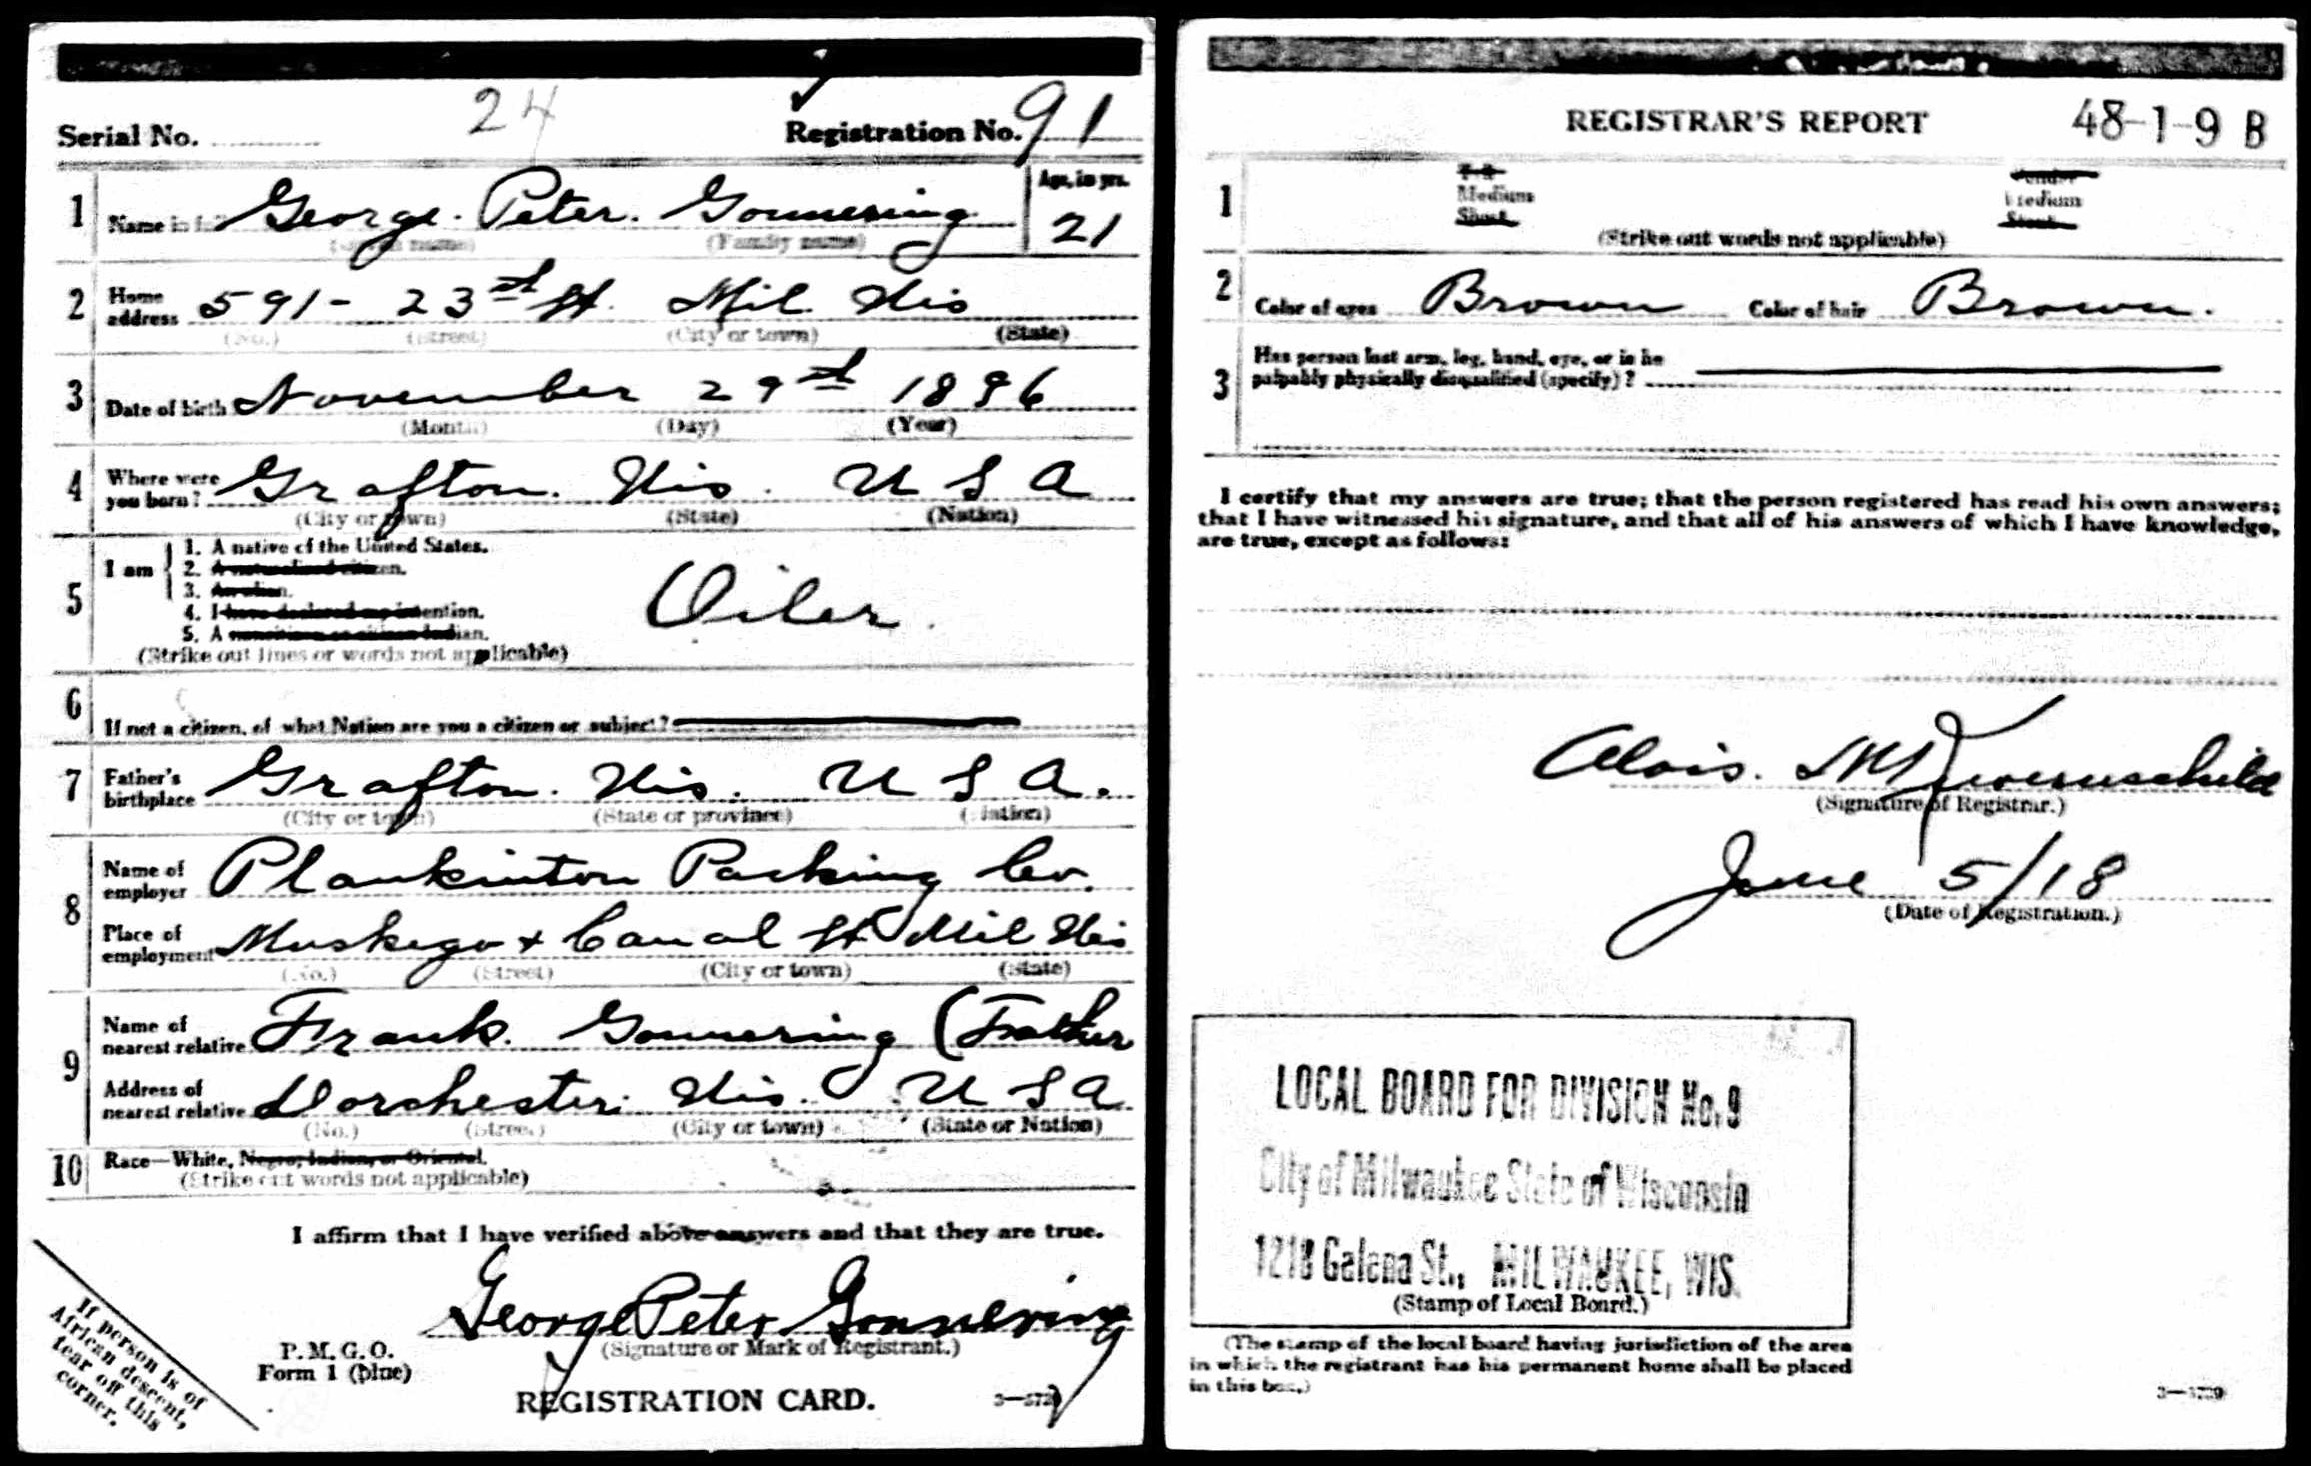 24
Serial No. Registration No. 91
1 Name in full George. Peter. Gonnering Age, in yrs.
(Given name) (Family name) 21
2 Home address 591- 23rd St. Mil Wis
(No.) (Street) (City or town) (State)
3 Date of birth November 29th 1896
(Month) (Day) (Year)
4 Where were you born? Grafton. Wis. U S A
(City or town) (State) (Nation)
5 I am
1. A native of the United States.
2. A naturalized citizen.
3. An alien.
4. I have declared my intention.
5. A noncitizen or citizen Indian.
(Strike out lines or words not applicable)
Oiler.
6 If not a citizen, of what Nation are you a citizen or subject?
7 Father's birthplace Grafton. Wis. U S A.
(City or town) (State or province) (Nation)
8 Name of employer Plankinton Packing Co.
Place of employment Muskego + Canal St Mil Wis
(No.) (Street) (City or town) (State)
9 Name of nearest relative Frank. Gonnering (Father
Address of nearest relative Dorchester. Wis. U S A
(No.) (Street) (City or town) (State or Nation)
10 Race—White, Negro, Indian, or Oriental.
(Strike out words not applicable)
I affirm that I have verified above answers and that they are true.
George Peter Gonnering
(Signature or Mark of Registrant.)
P. M. G. O.
Form 1 (blue)
REGISTRATION CARD.
If person is of
African descent,
tear off this
corner.
REGISTRAR'S REPORT 48-1-9 B
1 Medium Medium
Short Stout
(Strike out words not applicable)
2 Color of eyes Brown Color of hair Brown.
3 Has person lost arm, leg, hand, eye, or is he
palpably physically disqualified (specify)?
I certify that my answers are true; that the person registered has read his own answers;
that I have witnessed his signature, and that all of his answers of which I have knowledge,
are true, except as follows:
Alois. M
(Signature of Registrar.)
June 5/18
(Date of Registration.)
LOCAL BOARD FOR DIVISION No. 9
City of Milwaukee State of Wisconsin
1218 Galena St., MILWAUKEE, WIS.
(Stamp of Local Board.)
(The stamp of the local board having jurisdiction of the area
in which the registrant has his permanent home shall be placed
in this box.)